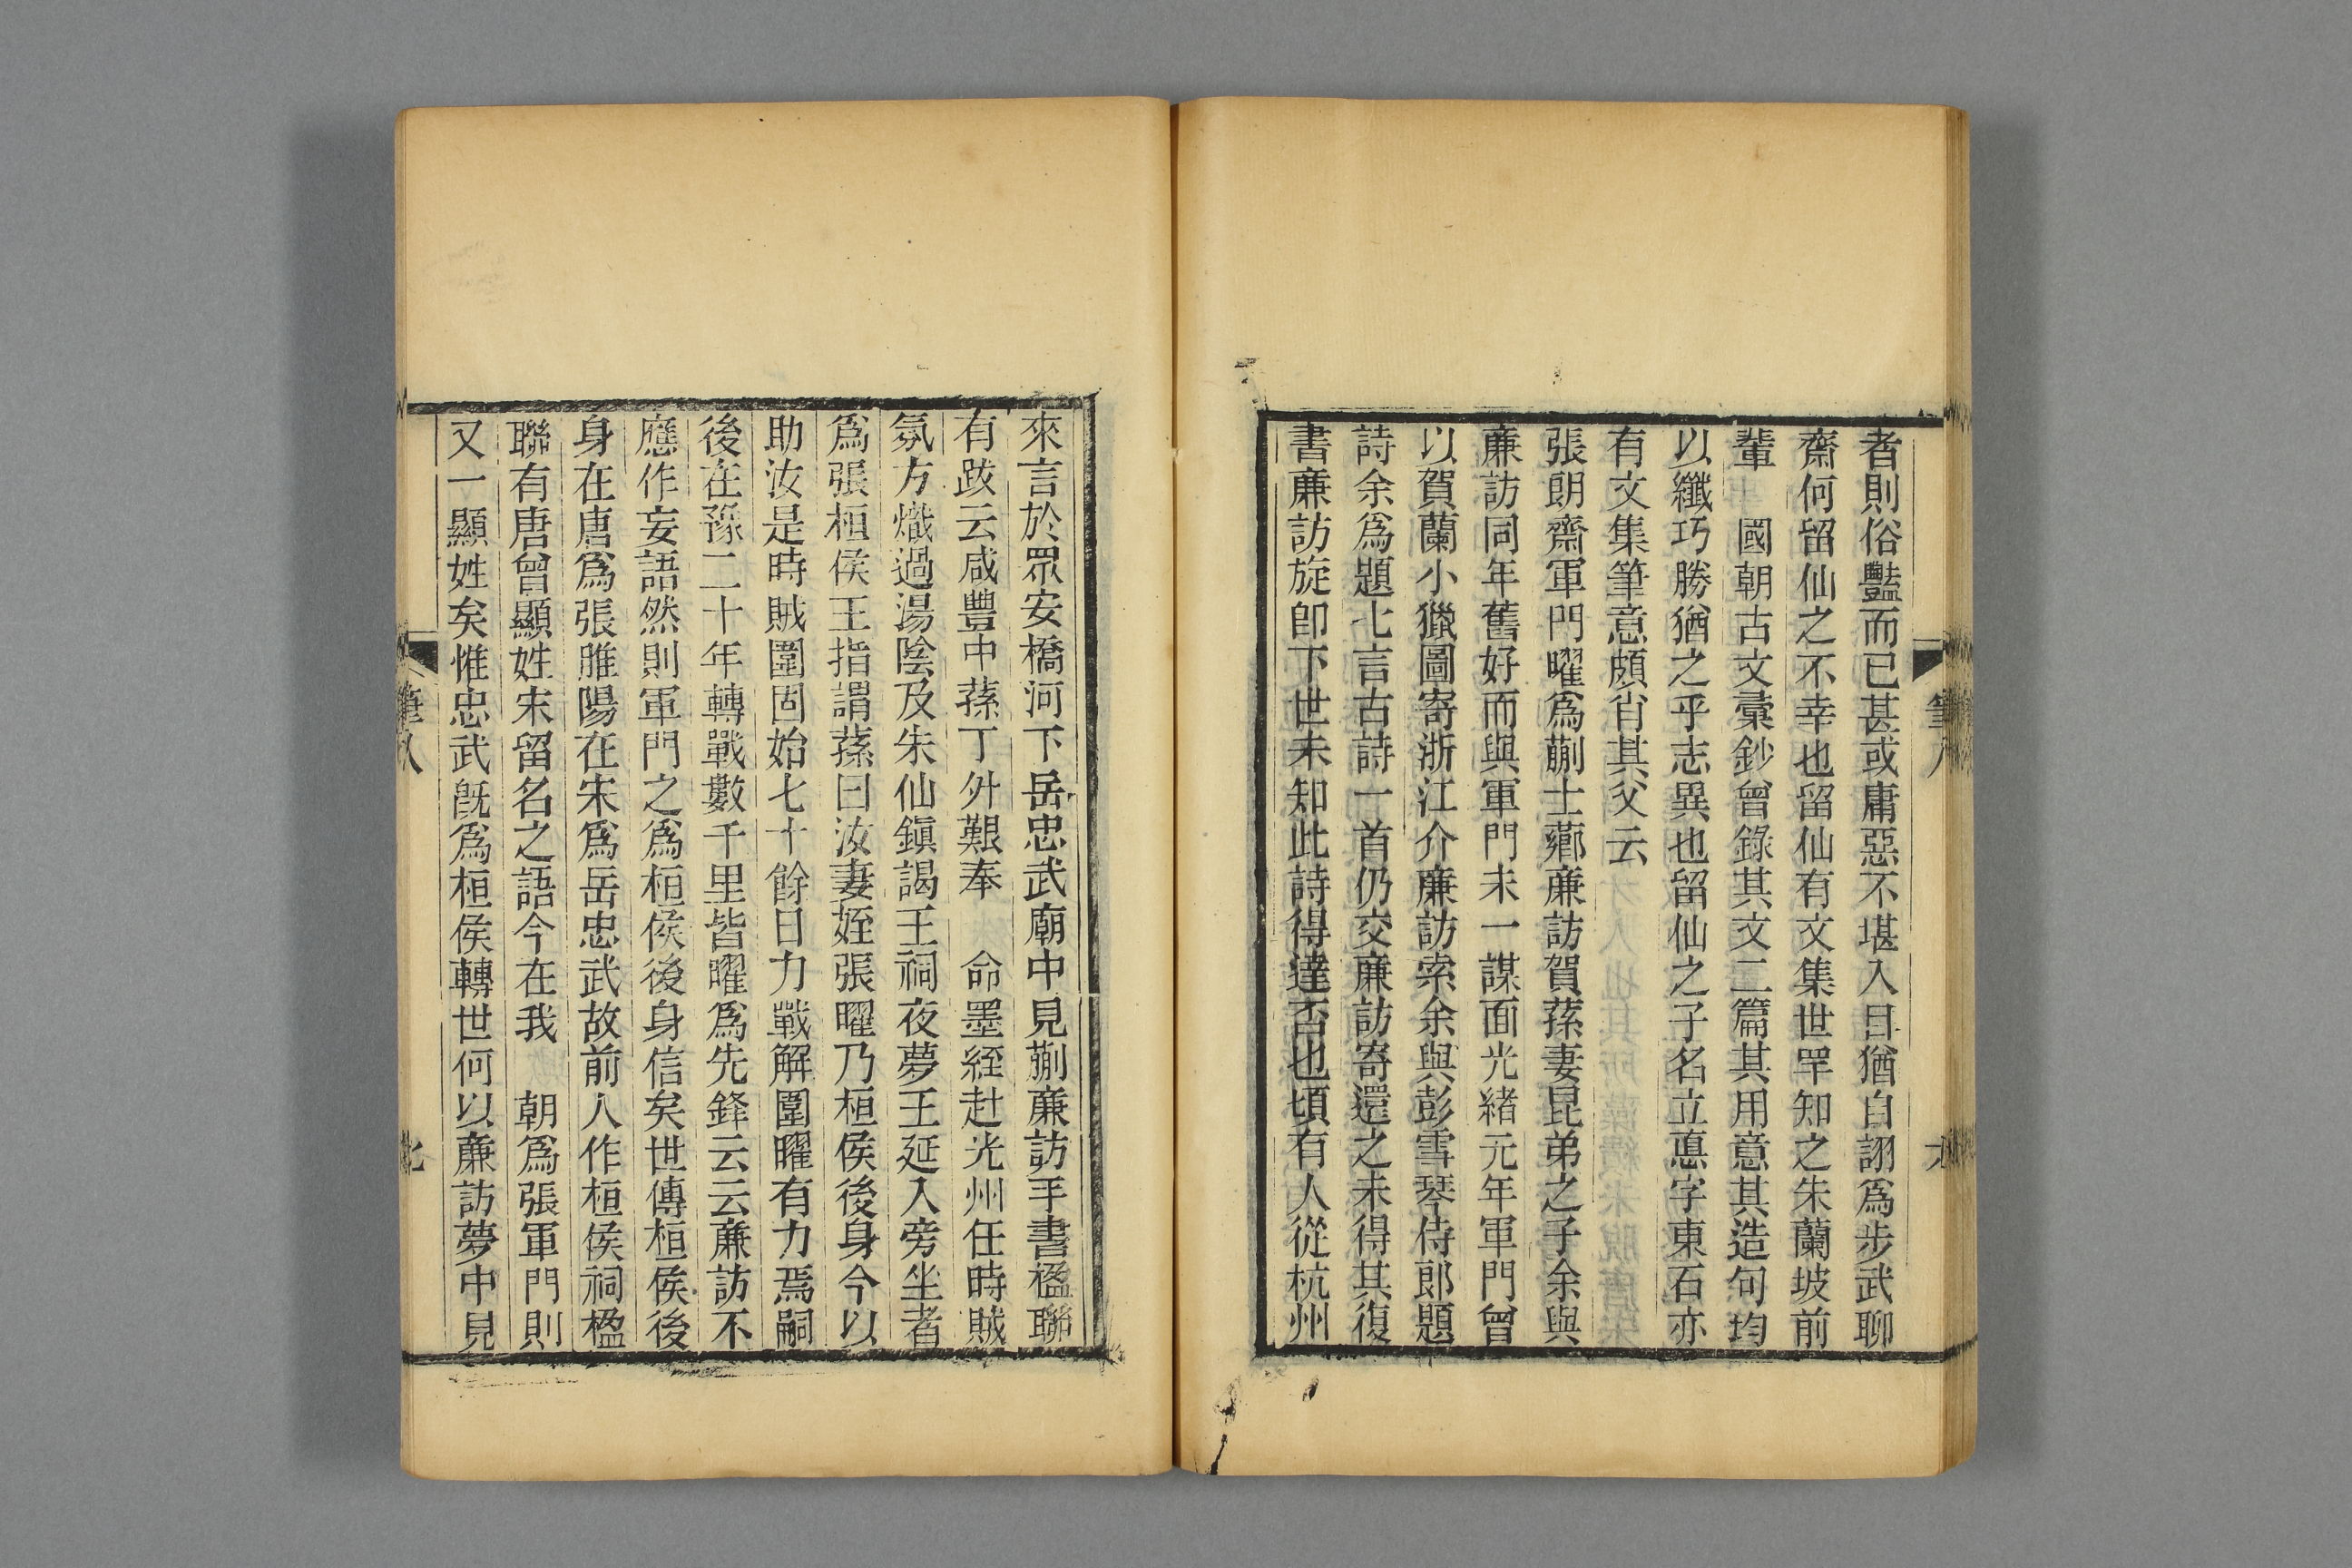 者則俗豔而已甚或庸惡不堪入目猶自詡爲步武聊
齋何留仙之不幸也留仙有文集世罕知之朱蘭坡前
輩　國朝古文彙鈔曾錄其文二篇其用意其造句均
以纖巧勝猶之乎志異也留仙之子名立悳字東石亦
有文集筆意頗肖其父云
張朗齋軍門曜爲蒯士薌亷訪賀蓀妻昆弟之子余與
亷訪同年舊好而與軍門未一謀面光緒元年軍門曾
以賀蘭小獵圖寄浙江介亷訪索余與彭雪琴侍郎題
詩余爲題七言古詩一首仍交亷訪寄還之未得其復
書亷訪旋卽下世未知此詩得達否也頃有人從杭州
筆八
來言於眾安橋河下岳忠武廟中見蒯亷訪手書楹聯
有跋云咸豐中蓀丁外艱奉　命墨絰赴光州任時賊
氛方熾過湯陰及朱仙鎭謁王祠夜夢王延入旁坐者
爲張桓侯王指謂蓀曰汝妻姪張曜乃桓侯後身今以
助汝是時賊圍固始七十餘日力戰解圍曜有力焉嗣
後在豫二十年轉戰數千里皆曜爲先鋒云云亷訪不
應作妄語然則軍門之爲桓侯後身信矣世傳桓侯後
身在唐爲張睢陽在宋爲岳忠武故前人作桓侯祠楹
聯有唐曾顯姓宋留名之語今在我　朝爲張軍門則
又一顯姓矣惟忠武旣爲桓侯轉世何以亷訪夢中見
筆八